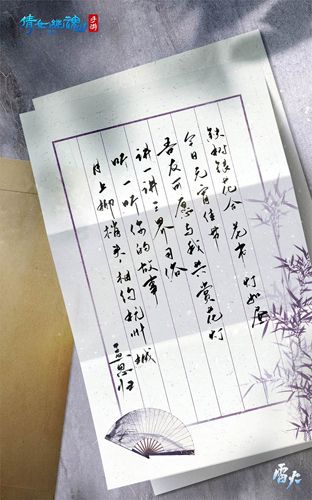 倩女幽魂
手游
铁树银花合 花市灯如昼
今日元宵佳节
吾友可愿与我共赏花灯
讲一讲三界习俗
听一听你的故事
月上柳梢头 相约杭州城
思归
雷火